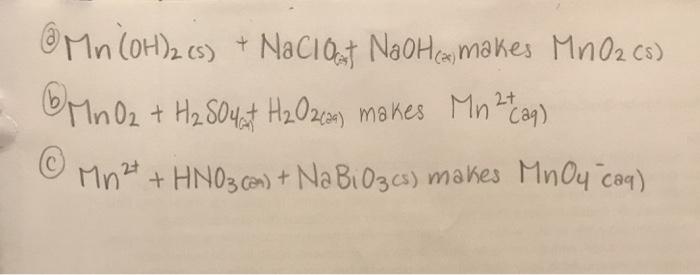 ⓐ Mn(OH)₂ (s) + NaClO(aq) + NaOH(aq) makes MnO₂ (s)
ⓑ MnO₂ + H₂SO₄(aq) + H₂O₂(aq) makes Mn²⁺(aq)
ⓒ Mn²⁺ + HNO₃(aq) + NaBiO₃(s) makes MnO₄⁻(aq)